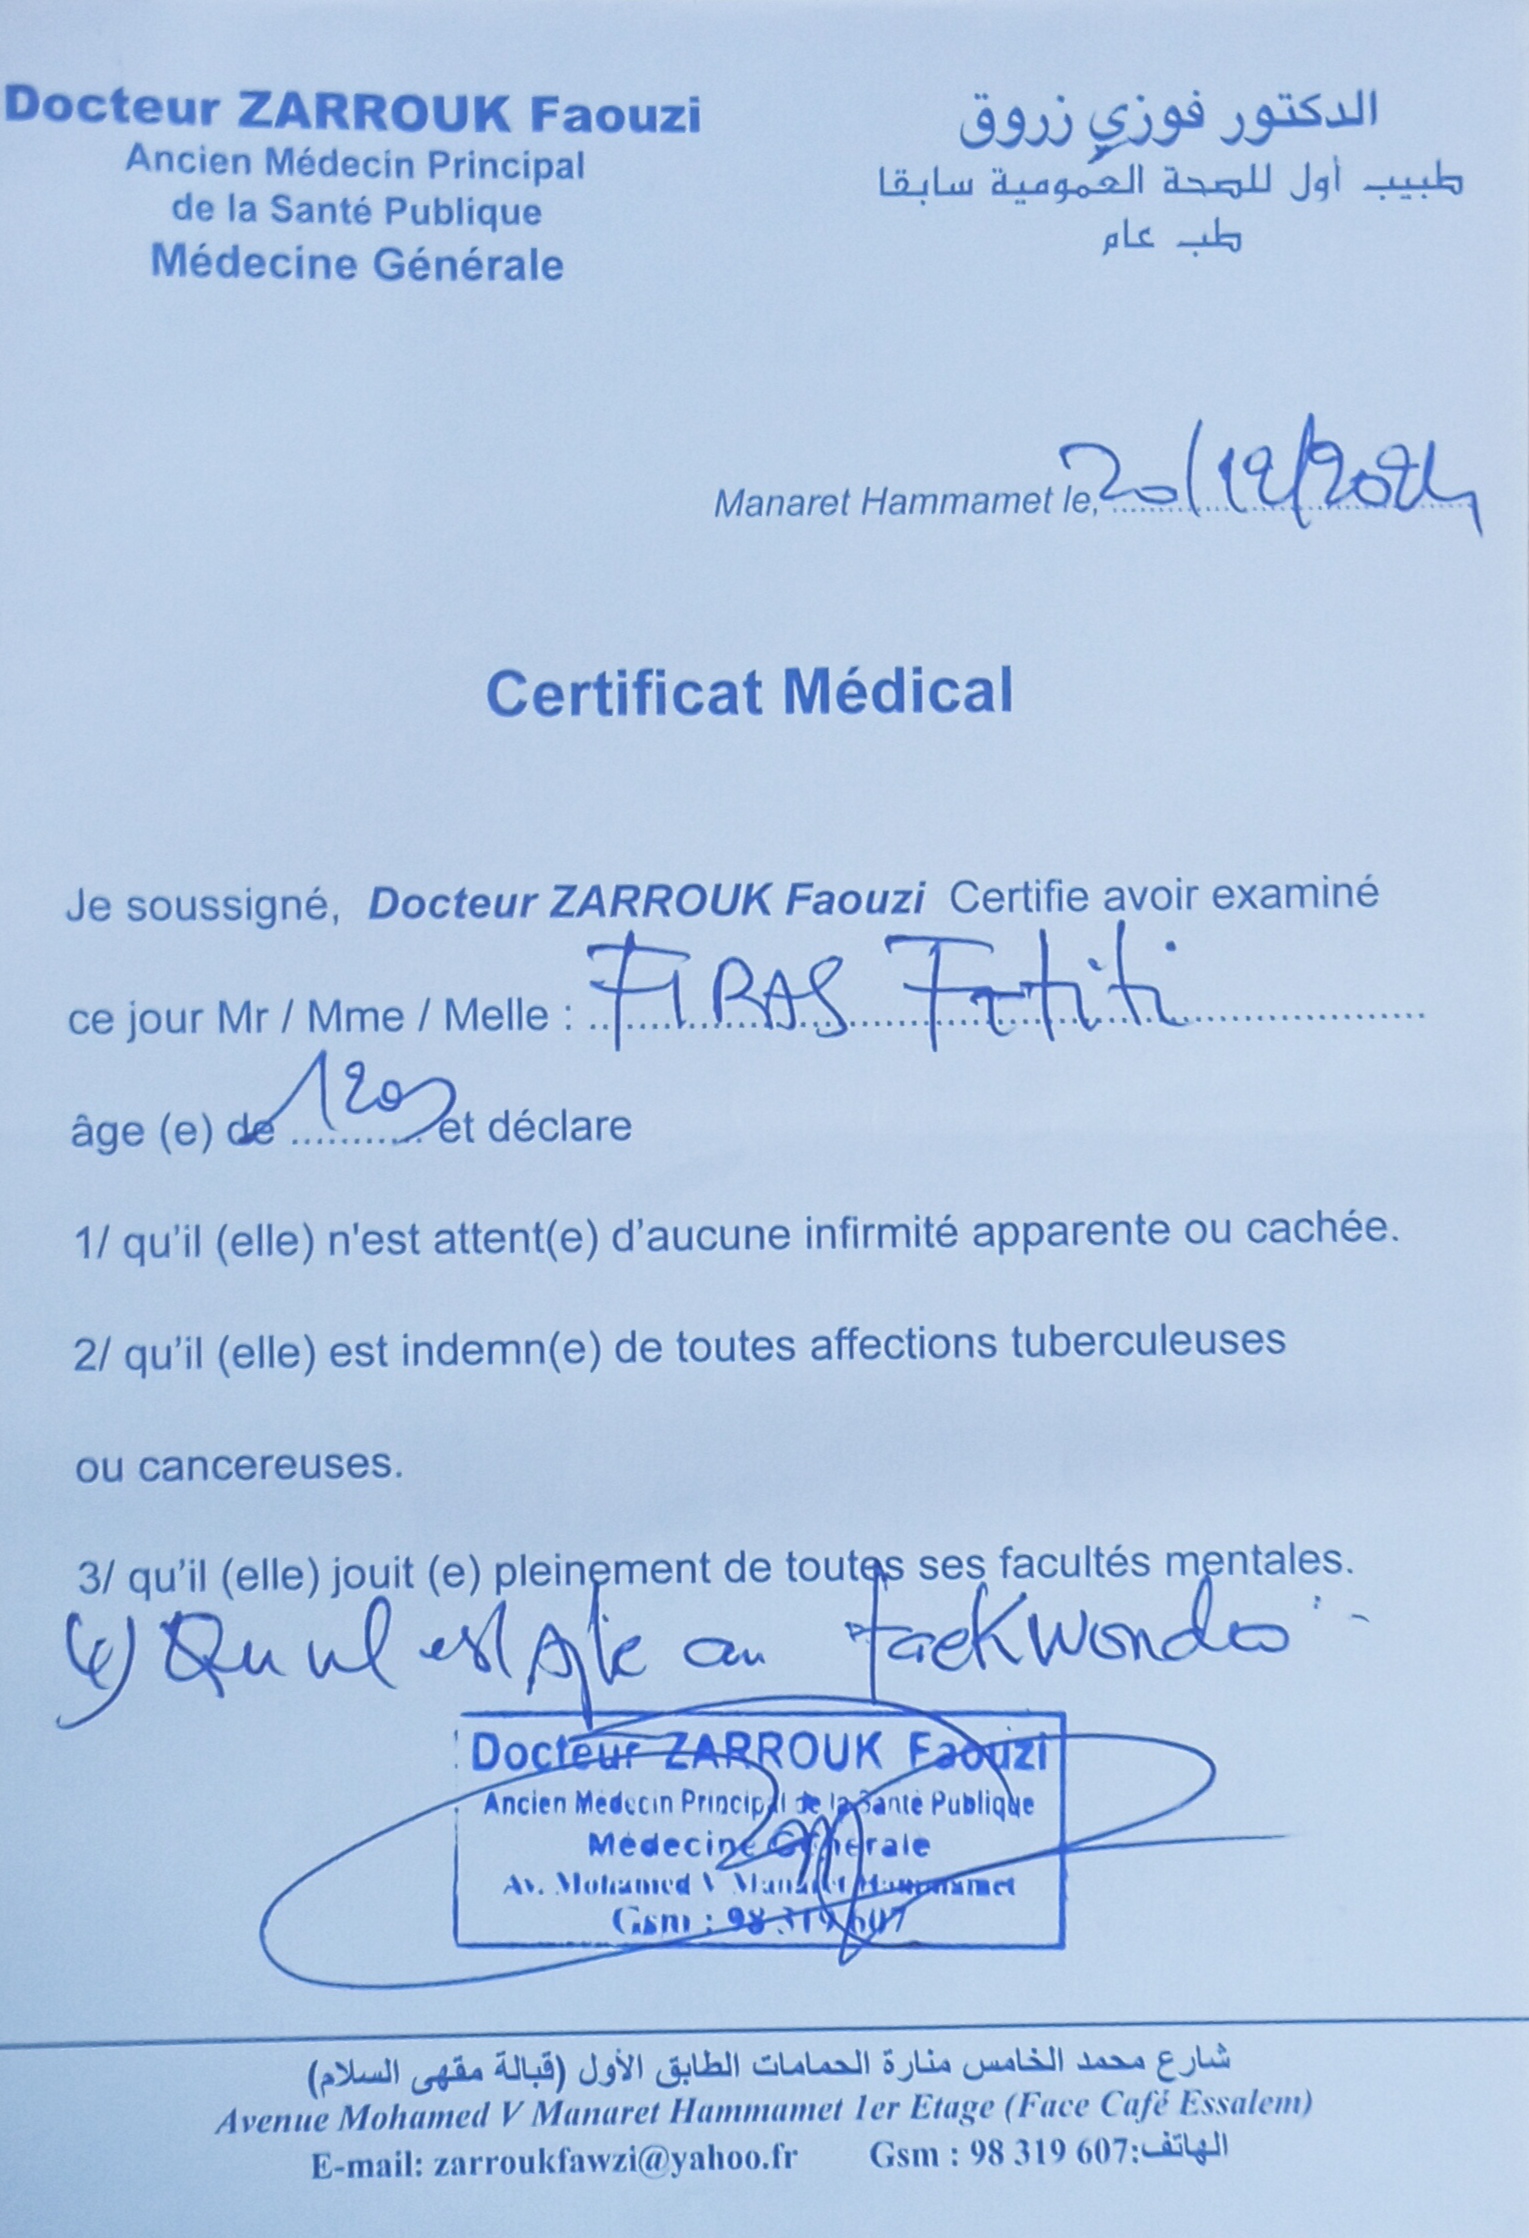 Docteur ZARROUK Faouzi
Ancien Médecin Principal
de la Santé Publique
Médecine Générale
الدكتور فوزي زروق
طبيب أول للصحة العمومية سابقا
طب عام
Manaret Hammamet le, 20/12/2024
Certificat Médical
Je soussigné, Docteur ZARROUK Faouzi Certifie avoir examiné
ce jour Mr / Mme / Melle : FIRAS
âge (e) de et déclare
1/ qu'il (elle) n'est attent(e) d'aucune infirmité apparente ou cachée.
2/ qu'il (elle) est indemn(e) de toutes affections tuberculeuses
ou cancereuses.
3/ qu'il (elle) jouit (e) pleinement de toutes ses facultés mentales.
4) est au taekwondo
Docteur ZARROUK Faouzi
Ancien Médecin Principal de la Santé Publique
Médecine Générale
Av. Mohamed V Manaret Hammamet
Gsm : 98 319 607
شارع محمد الخامس منارة الحمامات الطابق الأول (قبالة مقهى السلام)
Avenue Mohamed V Manaret Hammamet 1er Etage (Face Café Essalem)
E-mail: zarroukfawzi@yahoo.fr Gsm : 98 319 607:الهاتف